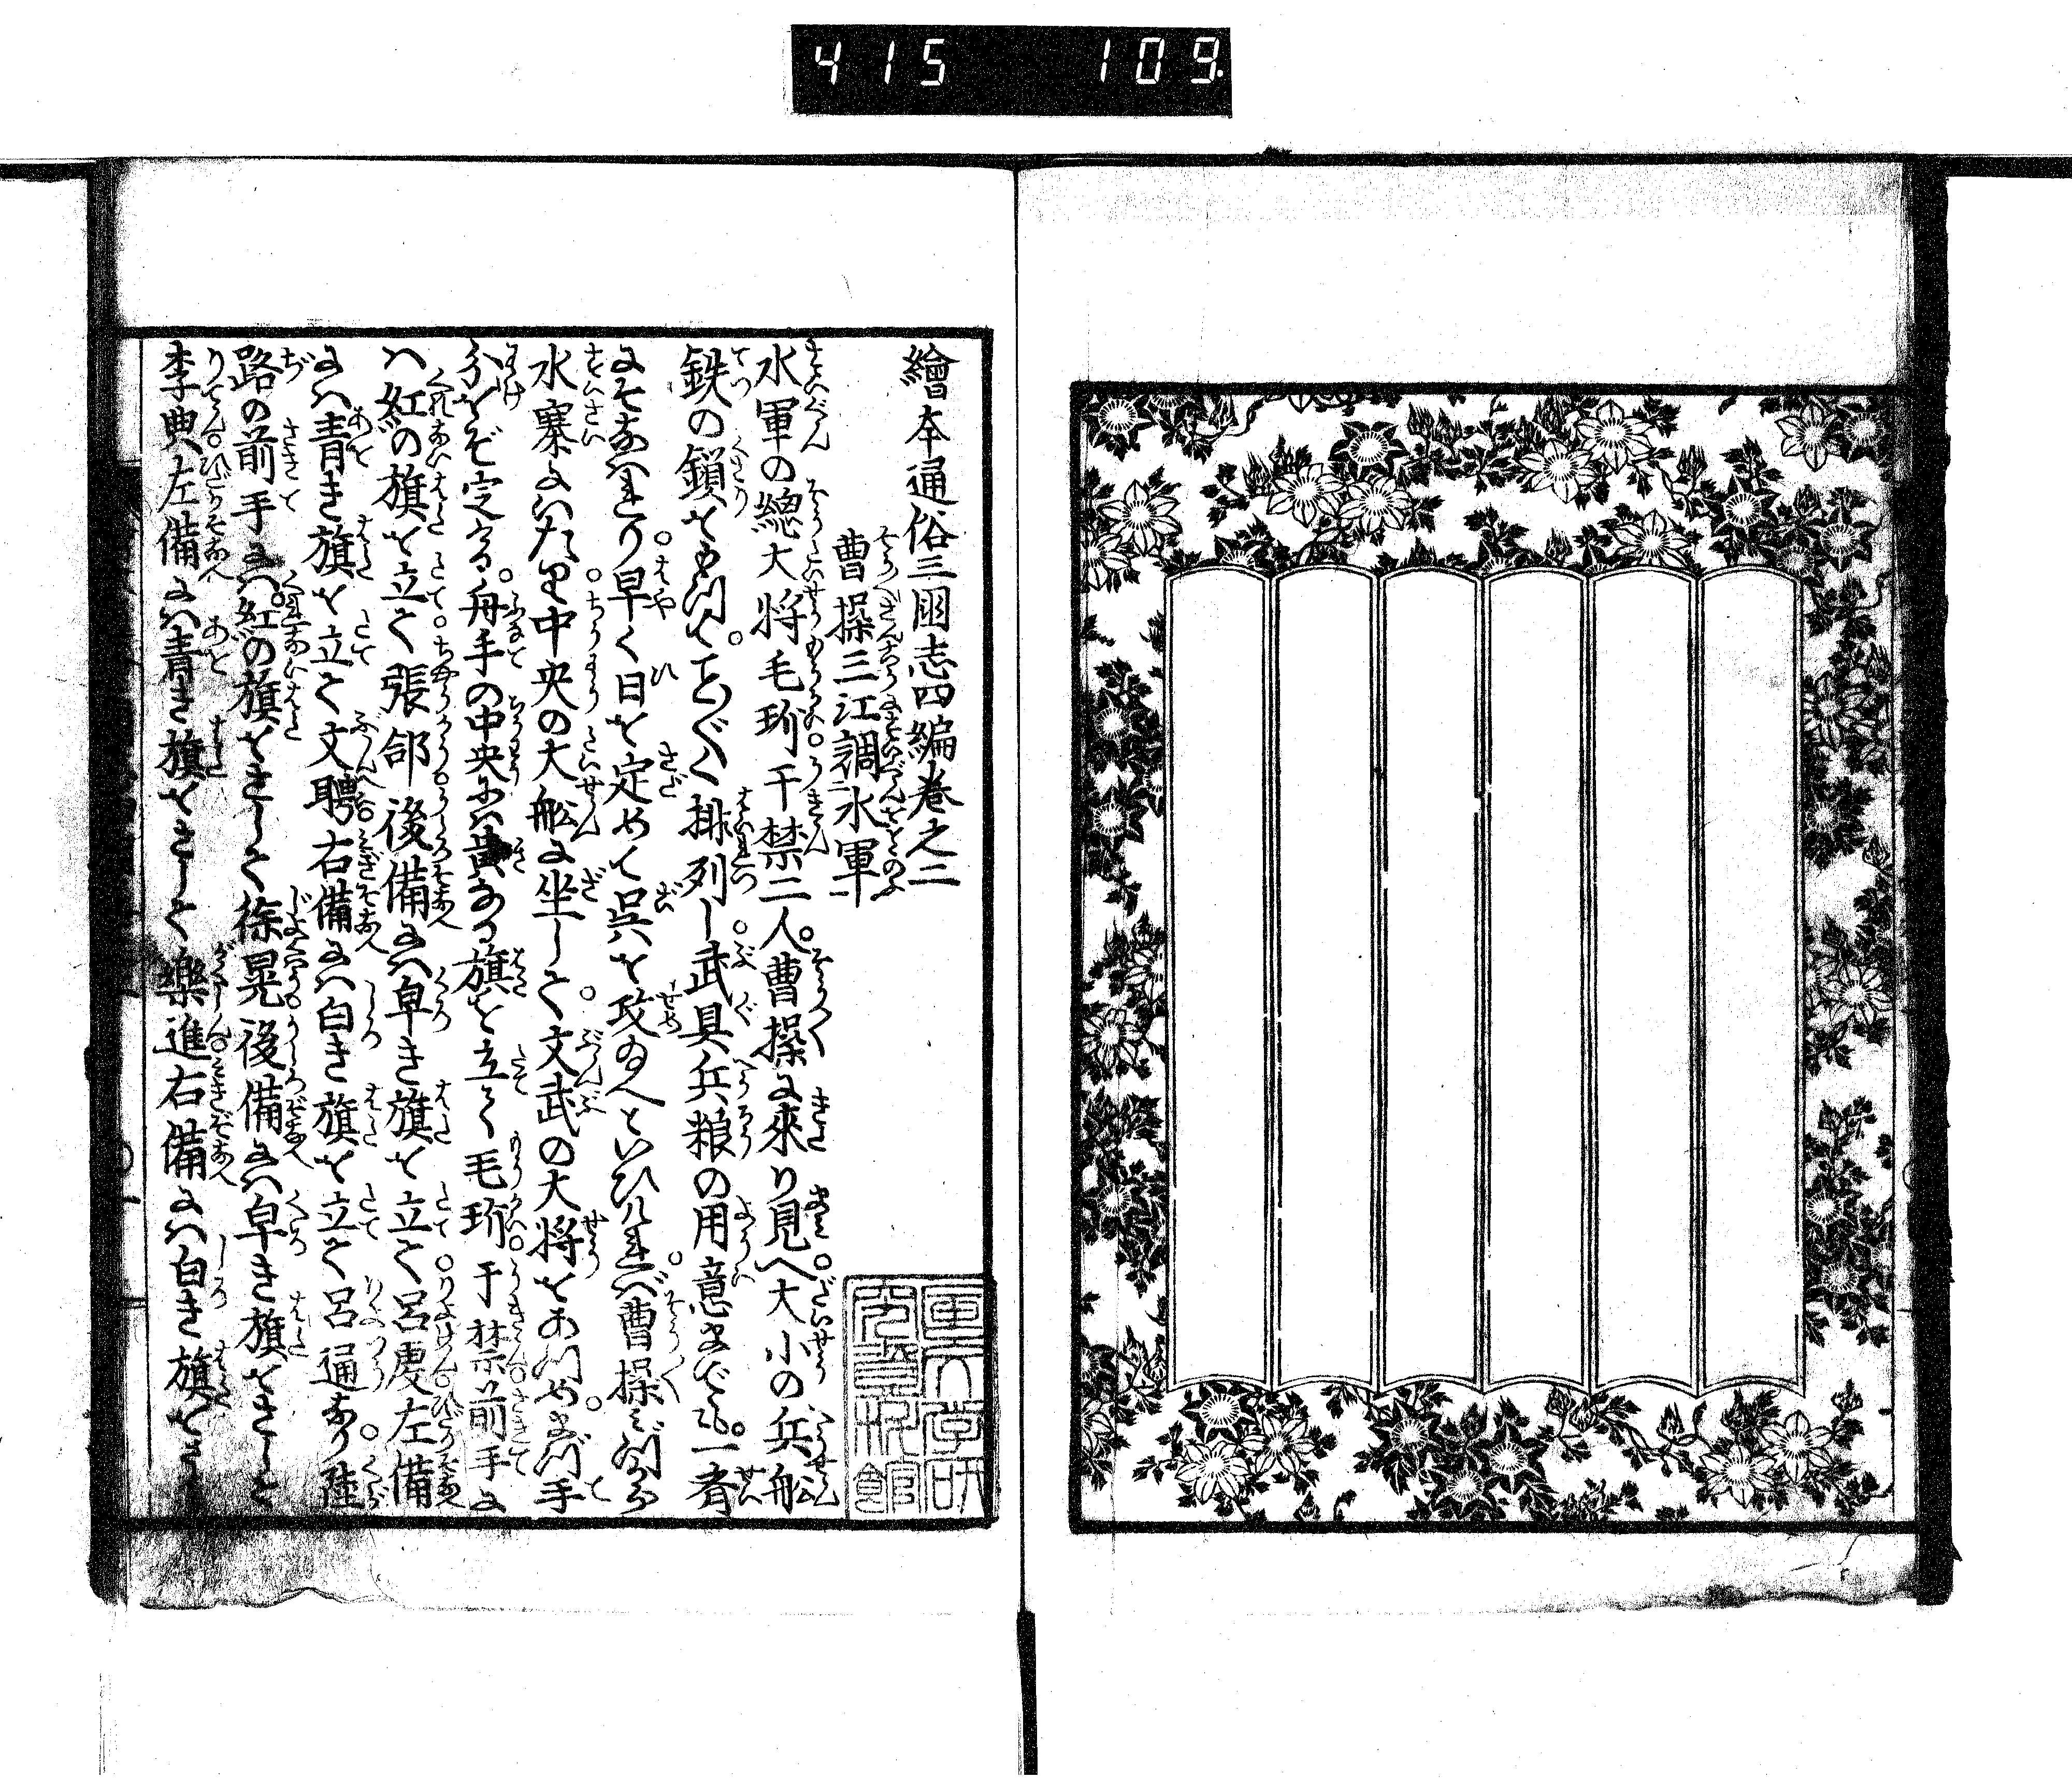 415 109
繪本通俗三國志四編巻之二
曹操三江調水軍
水軍の總大将毛玠于禁二人。曹操に來り見へ。大小の兵舩
鉄の鎖を以つて。ことごとく排列し。武具兵粮の用意まで。一齊
にそなへたり。早く日を定めて呉を攻給へといひければ。曹操みづから
水寨にいたり。中央の大舩に坐して。文武の大将をあつめ。まづ手
分をぞ定ける。舟手の中央には黄なる旗を立て毛玠。于禁。前手に
ハ紅の旗を立て。張郃。後備にハ皁き旗を立て。呂虔。左備
にハ青き旗を立て文聘。右備にハ白き旗を立て呂通なり。陸
路の前手にハ。紅の旗をさして徐晃。後備にハ皁き旗をさして
李典。左備にハ青き旗をさして樂進。右備にハ白き旗をさし